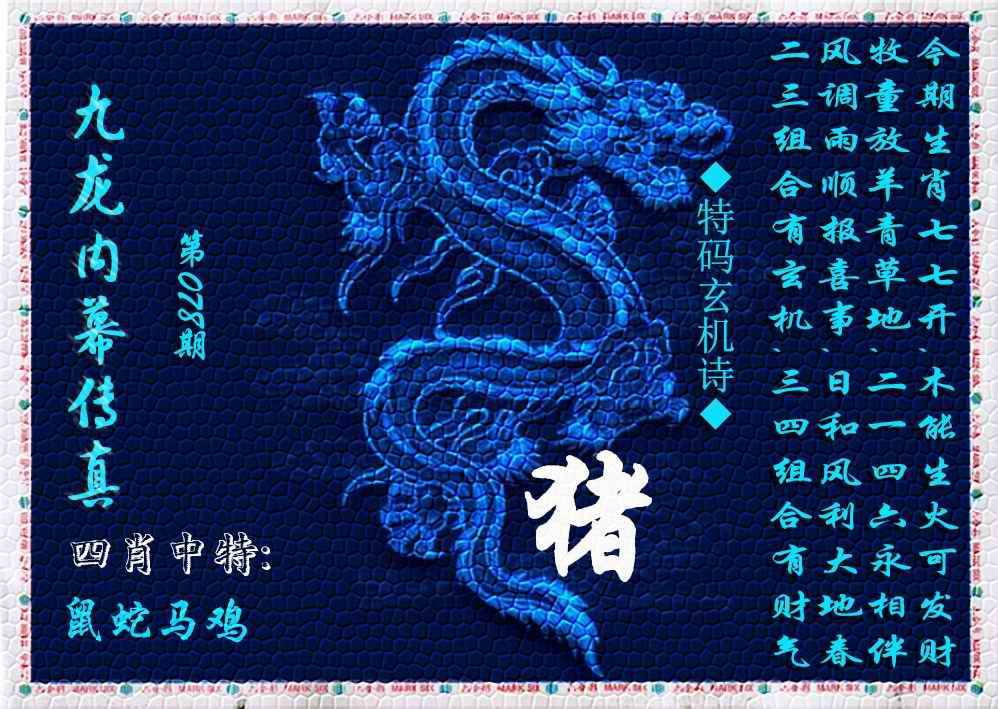 今期生肖七七开、木能生火可发财
牧童放羊青草地、二一四六永相伴
风调雨顺报喜事、日和风利大地春
二三组合有玄机、三四组合有财气
◆特码玄机诗◆
猪
第078期
九龙内幕传真
四肖中特:
鼠蛇马鸡
MARK SIX